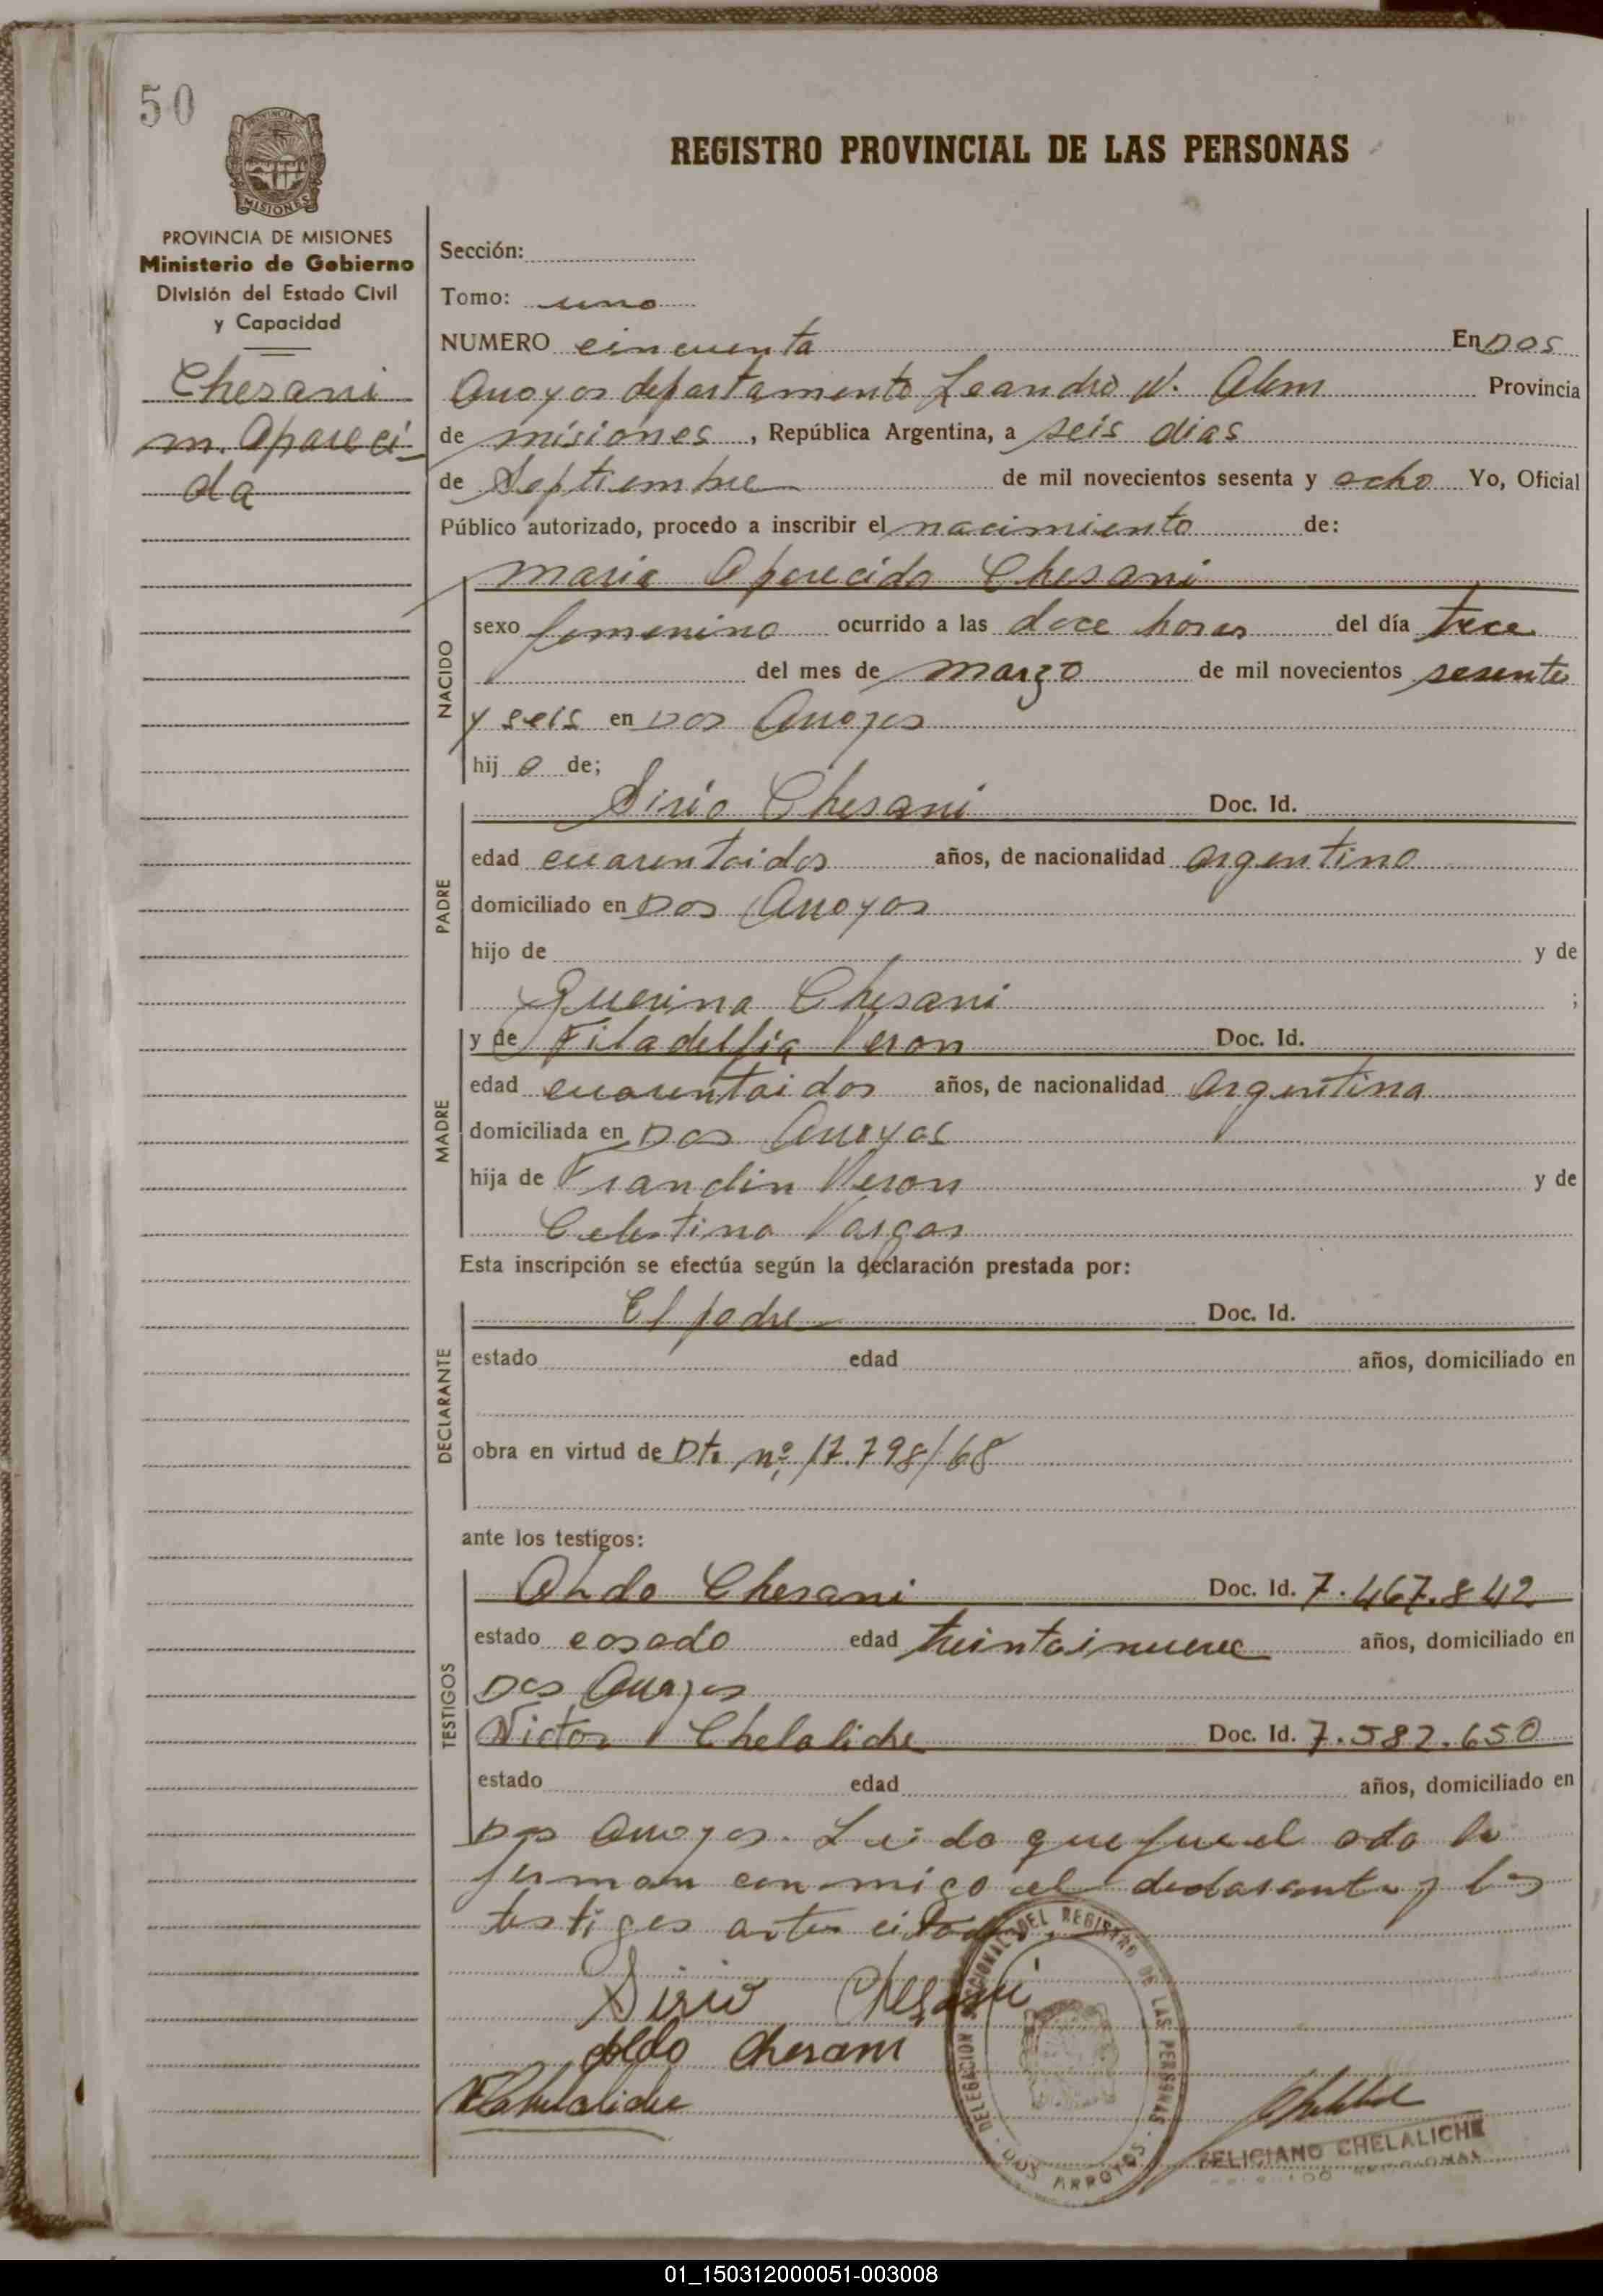 50
PROVINCIA DE
MISIONES
PROVINCIA DE MISIONES
Ministerio de Gobierno
División del Estado Civil
y Capacidad
Chesani
m. Apareci-
da
REGISTRO PROVINCIAL DE LAS PERSONAS
Sección:
Tomo: uno
NUMERO cincuenta En Dos
Arroyos departamento Leandro N. Alem Provincia
de misiones, República Argentina, a seis dias
de Septiembre de mil novecientos sesenta y ocho Yo, Oficial
Público autorizado, procedo a inscribir el nacimiento de:
NACIDO
maria Aparecida Chesani
sexo femenino ocurrido a las doce horas del día trece
del mes de marzo de mil novecientos sesenta
y seis en Dos Arroyos
hij a de;
PADRE
Sirio Chesani Doc. Id.
edad cuarentaidos años, de nacionalidad argentino
domiciliado en Dos Arroyos
hijo de y de
Querina Chesani ;
MADRE
y de Filadelfia Veron Doc. Id.
edad cuarentaidos años, de nacionalidad Argentina
domiciliada en Dos Arroyos
hija de Frandin Veron y de
Celestina Vargas
Esta inscripción se efectúa según la declaración prestada por:
DECLARANTE
El padre Doc. Id.
estado edad años, domiciliado en
obra en virtud de Dto nº 17.798/68
ante los testigos:
TESTIGOS
Aldo Chesani Doc. Id. 7.467.842
estado casado edad treintainueve años, domiciliado en
Dos Arroyos
Victor Chelaliche Doc. Id. 7.582.650
estado edad años, domiciliado en
Dos Arroyos. Leido que fue el acta la
firman conmigo el declarante y los
testigos antes citados.
Sirio Chesani
Aldo Chesani
VChelaliche
DELEGACION SECCIONAL DEL REGISTRO DE LAS PERSONAS
DOS ARROYOS
FELICIANO CHELALICHE
01_150312000051-003008